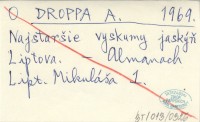 O DROPPA A. 1969.
Najstaršie vyskumy jaskýň
Liptova. - Almanach
Lipt. Mikuláša 1.